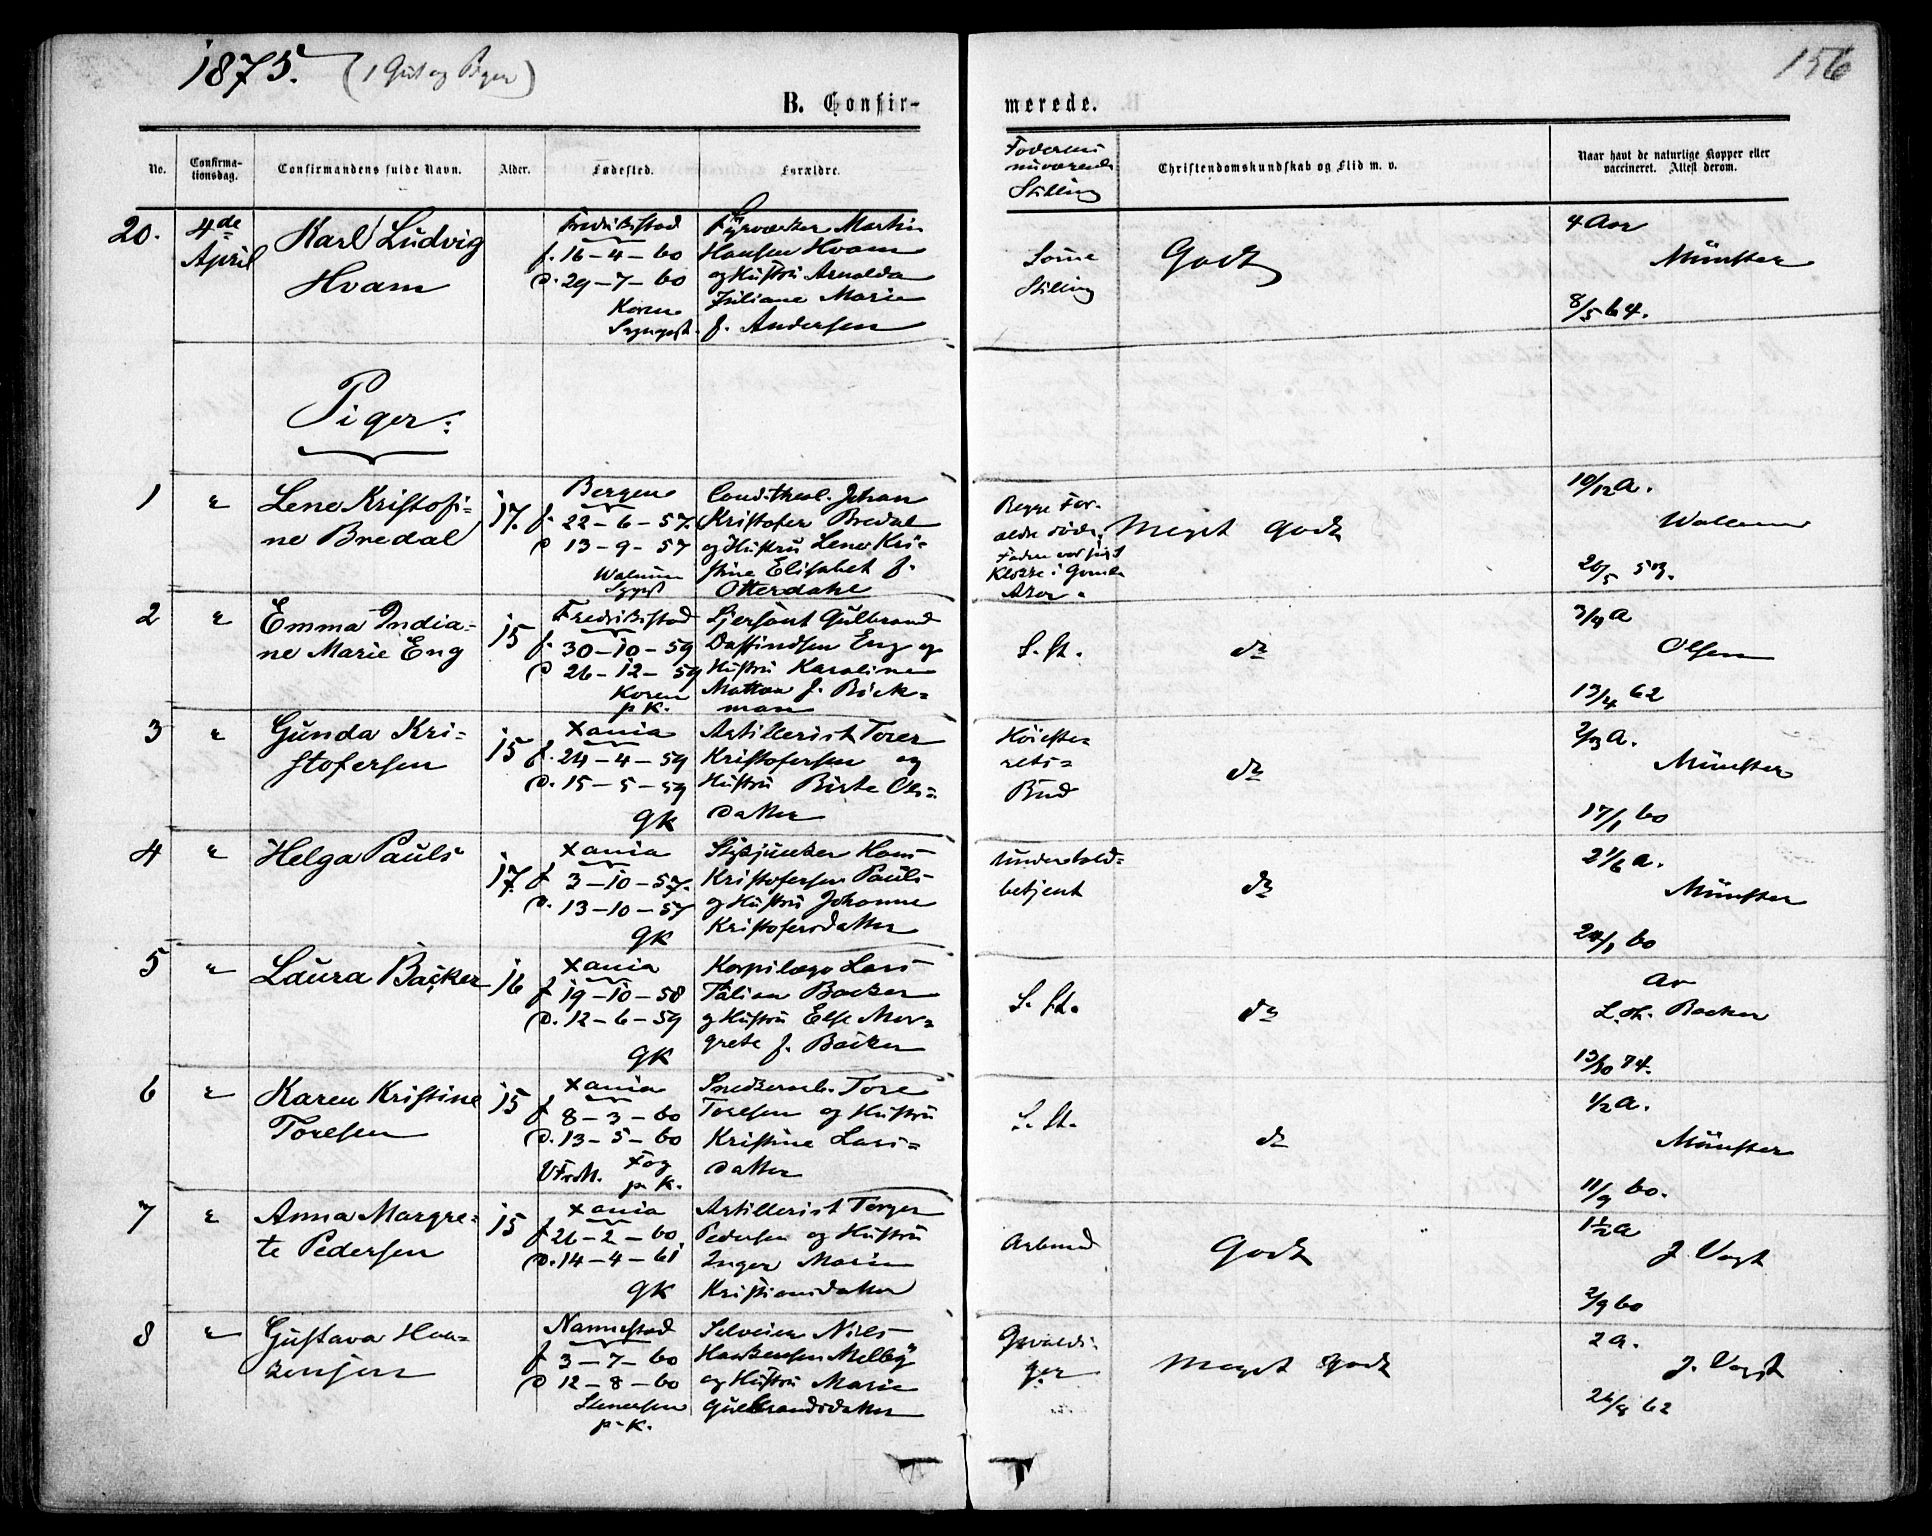 1875. (1 Gut og Piger)
156
B. Confir-
merede.
No.
Confirma-
tionsdag.
Confirmandens fulde Navn.
Alder.
Fødested.
Forældre.
Faderens
nuværende
Stilling
Christendomskundskab og Flid m. v.
Naar havt de naturlige Kopper eller
vaccineret. Attest derom.
20.
4de
April
Karl Ludvig
Hvam
Fredriksstad
f. 16-4-60
d. 29-7-60
Koren
Fyrværker Martin
Hansen Hvam
og Hustru Arnolda
Juliane Marie
f. Andersen
Samme
Stilling
Godt
4 Aar
Münster
8/5 64.
Piger:
1
"
Lene Kristofi-
ne Bredal
17.
Bergen
f. 22-6-57.
d 13-9-57
Cand. theol. Johan
Kristofer Bredal
og Hustru Lene Kri-
stine Elisabet f.
Otterdahl
Begge For-
ældre døde,
Faden var sidst
Klokke i Gamle
Aker.
Meget Godt
10/12 a.
2
"
Emma India-
ne Marie Eng
15
Fredriksstad
f. 30-10-59
d 26-12-59
Koren
p K.
Sersjant Gulbrand
Daffindsen Eng og
Hustru Karoline
Mattea f. Bick-
man
S. St.
do
3/4 a
Olsen
13/4 62
3
"
Gunda Kri-
stofersen
15
Xania
f. 24-4-59
d. 15-5-59
GK
Artillerist Torer
Kristofersen og
Hustru Birte Ols-
datter
Høieste-
rets-
Bud
do
2/3 a.
Münster
17/1 60
4
"
Helga Pauls
17.
Xania
f 3-10-57.
d. 13-10-57
GK
Stykjunker Hans
Kristofersen Pauls
og Hustru Johanne
Kristofersdatter
Undertold-
betjent
do
2 1/6 a.
Münster
24/1 60
5
"
Laura Backer
16
Xania
f 19-10-58
d. 12-6-59
GK
Korpslæge Lars
Tulian Backer
og Hustru Else Mar-
grete f. Backer
S. St.
do
Ar
L. T. Backer
13/10 74.
6
"
Karen Kristine
Toresen
15
Xania
f 8-3-60
d. 13-5-60
V Frels. Fog
p. K.
Snedkersv. Tore
Toresen og Hustru
Kristine Lars-
datter
S. St.
do
1/2 a.
Münster
11/9 60.
7
"
Anna Margre-
te Pedersen
15
Xania
f 26-2-60
d. 14-4-61
GK
Artillerist Torger
Pedersen og Hustru
Inger Marie
Kristiansdatter
Arbmd
Godt
1 1/2 a
J. Vogt
2/9 60
8
"
Gustava Haa-
kensen
Nannestad
f 3-7-60
d 12-8-60
Stenersen
p. K.
Selveier Niels
Haakensen Melby
og Hustru Marie
Gulbrandsdatter
Meget godt
2 a.
J. Vogt
26/8 62